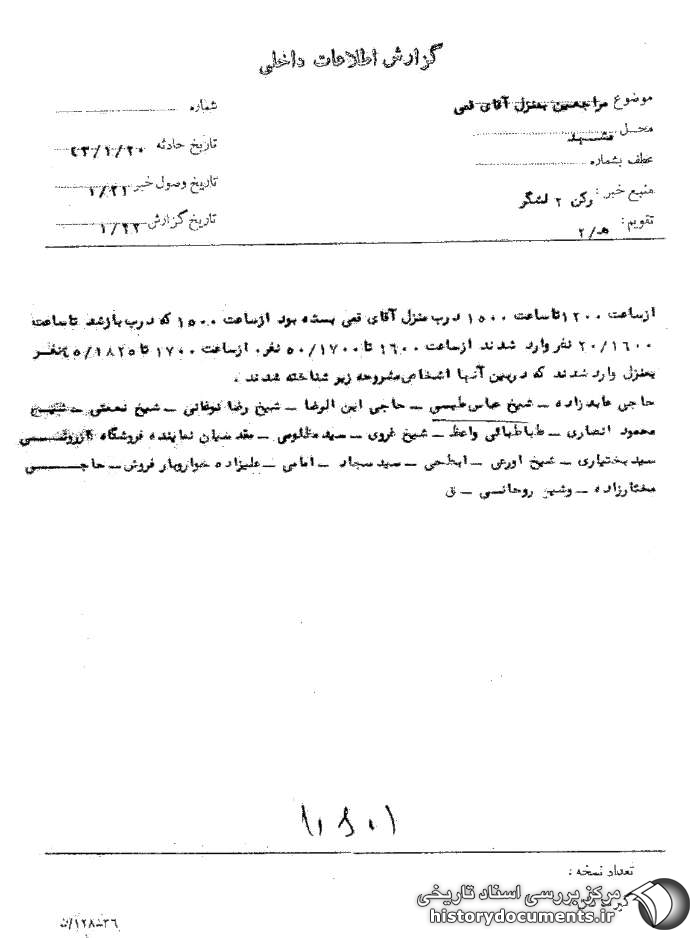 گزارش اطلاعات داخلی
موضوع مراجعین بمنزل آقای قمی
محل مشهد
عطف بشماره
منبع خبر : رکن ۲ لشگر
تقویم : هـ/۲
شماره
تاریخ حادثه ۴۳/۱/۲۰
تاریخ وصول خبر ۱/۲۱
تاریخ گزارش ۱/۲۲
ازساعت ۱۲۰۰ تا ساعت ۱۵۰۰ درب منزل آقای قمی بسته بود ازساعت ۱۵۰۰ که درب بازشد تاساعت
۲۰/۱۶۰۰ نفر وارد شدند ازساعت ۱۶۰۰ تا ۵۰/۱۷۰۰ نفر، ازساعت ۱۷۰۰ تا ۴۵/۱۸۲۵ نفر
بمنزل وارد شدند که دربین آنها اشخاص مشروحه زیر شناخته شدند .
حاجی عابدزاده – شیخ عباس طبسی – حاجی ابن الرضا – شیخ رضا نوغانی – شیخ نعمتی – شیخ
محمود انصاری – طباطبائی واعظ – شیخ غروی – سید مظلومی – مقدسیان نماینده فروشگاه
سید بختیاری – شیخ اورعی – ابطحی – سید سجاد – امامی – علیزاده خواروبار فروش – حاجی
مختارزاده – وشیخ روحانی – ق
تعداد نسخه :
مرکز بررسی اسناد تاریخی
historydocuments.ir
۱۲۸-۳۶/ث